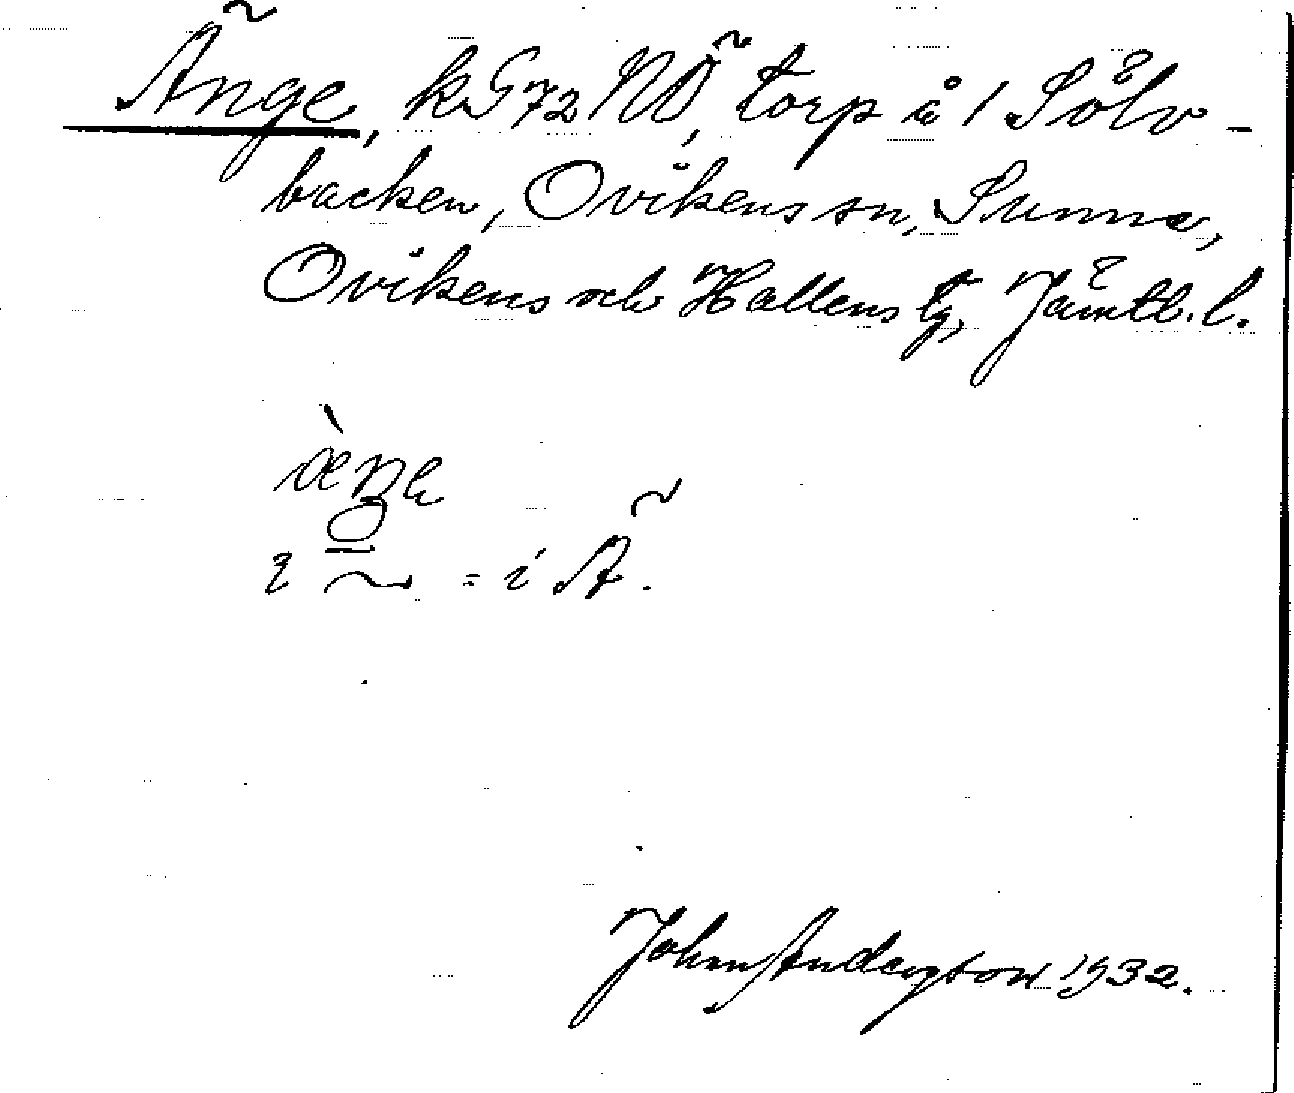 Änge, k G72 NÖ, torp å 1 Sölv-
backen, Ovikens sn, Sunne,
Ovikens och Hallens tg, Jämtl. l.
i ~ = i Ä.
John Anderson 1932.